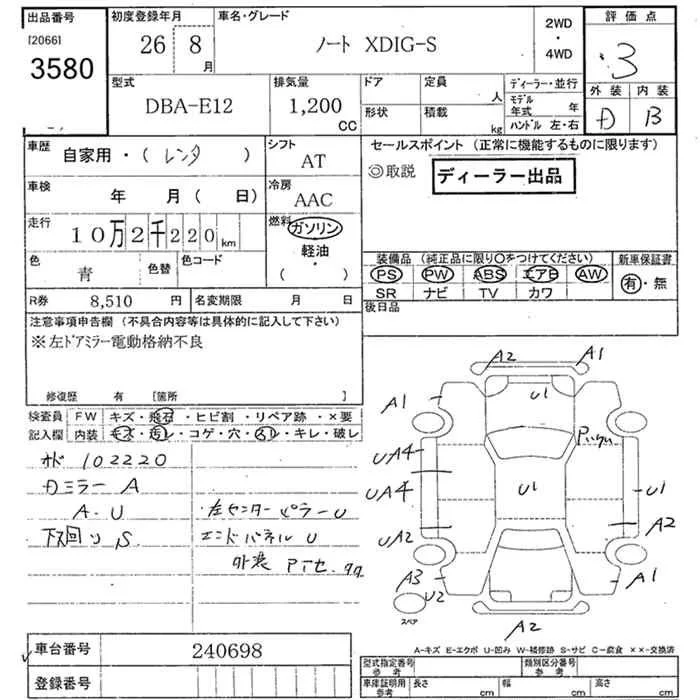 出品番号
[2066]
3580
初度登録年月
26 8 月
車名・グレード
ノート XDIG-S
2WD
・
4WD
評価点
3
外装 内装
D B
型式
DBA-E12
排気量
1,200
CC
ドア
形状
定員
人
積載
kg
ディーラー・並行
モデル年式 年
ハンドル 左・右
車歴
自家用・(レンタ)
シフト
AT
車検
年 月( 日)
冷房
AAC
走行
10万2千220 km
燃料
ガソリン
軽油
( ・ )
色
青
色替
色コード
R券 8,510 円
名変期限 月 日
セールスポイント (正常に機能するものに限ります)
◎取説
ディーラー出品
装備品 (純正品に限り○をつけてください)
PS PW ABS エアB AW
SR ナビ TV カワ
新車保証書
有・無
後日品
注意事項申告欄 (不具合内容等は具体的に記入して下さい)
※左ドアミラー電動格納不良
修復歴 有 [箇所 ]
検査員
記入欄
FW キズ・飛石・ヒビ割・リペア跡・×要
内装 キズ・汚レ・コゲ・穴・スレ・キレ・破レ
102220
Dミラー A
A・U
下回り S
左センターピラー U
エンドパネル U
外装
A2 A1
A1
U1
UA4
UA4
U1
U1
UA2
A2
A3
U2
A1
スペア
A2
A-キズ E-エクボ U-凹み W-補修跡 S-サビ C-腐食 ××-交換済
車台番号 240698
登録番号
型式指定番号
参考
類別区分番号
参考
車庫証明用
参考
長さ cm 幅 cm 高さ cm